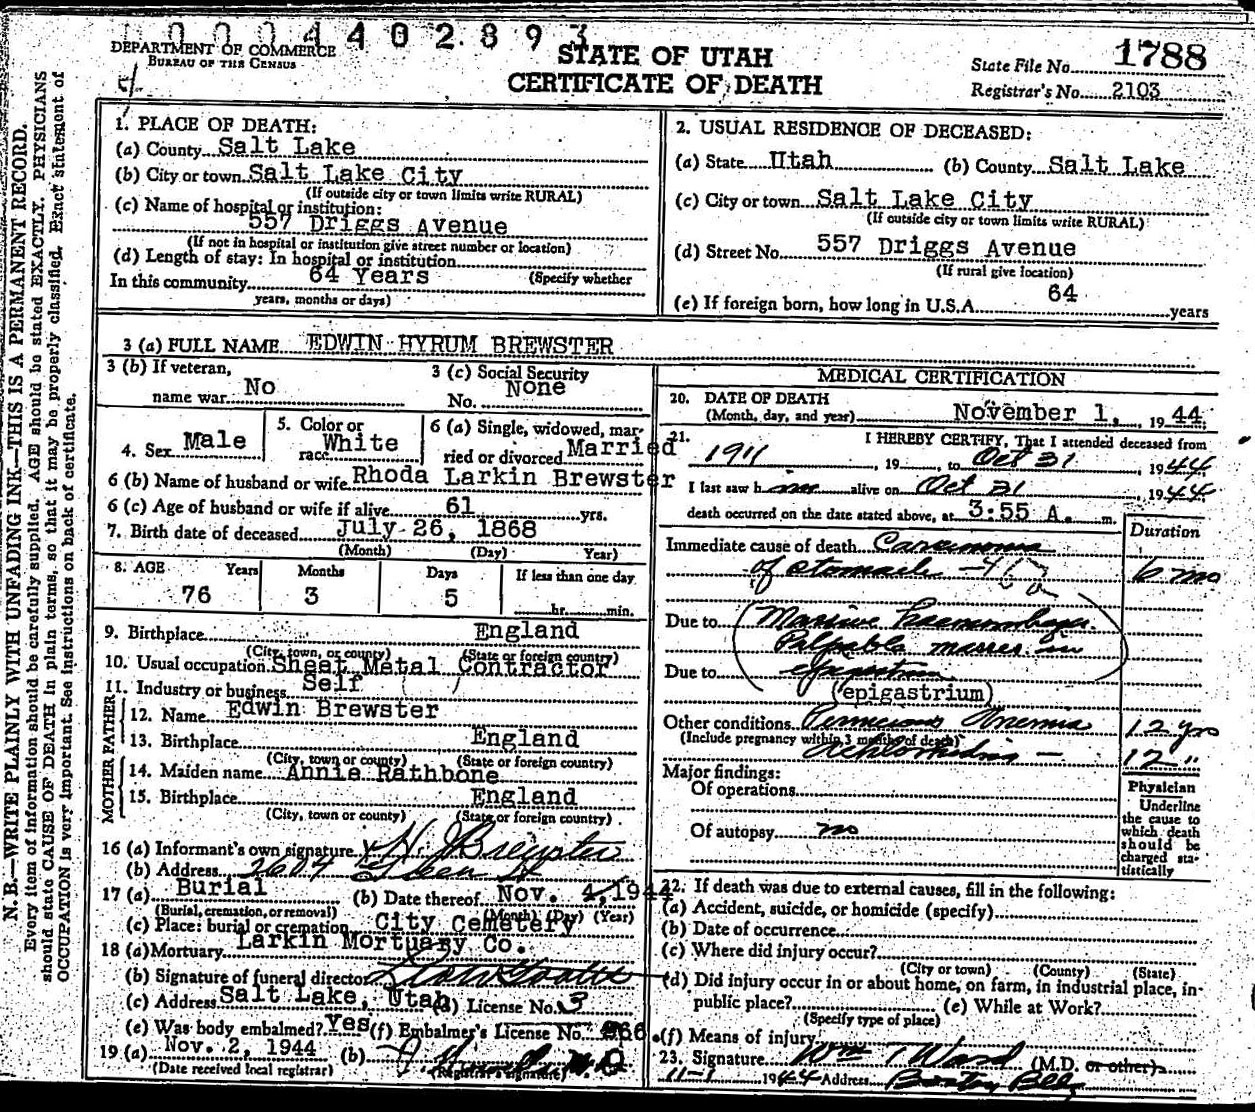 0004402893
DEPARTMENT OF COMMERCE
BUREAU OF THE CENSUS
STATE OF UTAH
CERTIFICATE OF DEATH
State File No. 1788
Registrar's No. 2103
N. B.—WRITE PLAINLY WITH UNFADING INK—THIS IS A PERMANENT RECORD.
Every item of information should be carefully supplied. AGE should be stated EXACTLY. PHYSICIANS
should state CAUSE OF DEATH in plain terms, so that it may be properly classified. Exact statement of
OCCUPATION is very important. See instructions on back of certificate.
1. PLACE OF DEATH:
(a) County Salt Lake
(b) City or town Salt Lake City
(If outside city or town limits write RURAL)
(c) Name of hospital or institution:
557 Driggs Avenue
(If not in hospital or institution give street number or location)
(d) Length of stay: In hospital or institution
In this community 64 Years (Specify whether
years, months or days)
2. USUAL RESIDENCE OF DECEASED:
(a) State Utah (b) County Salt Lake
(c) City or town Salt Lake City
(If outside city or town limits write RURAL)
(d) Street No. 557 Driggs Avenue
(If rural give location)
(e) If foreign born, how long in U.S.A. 64 years
3 (a) FULL NAME EDWIN HYRUM BREWSTER
3 (b) If veteran,
name war No
3 (c) Social Security
No. None
4. Sex Male
5. Color or
race White
6 (a) Single, widowed, mar-
ried or divorced Married
6 (b) Name of husband or wife Rhoda Larkin Brewster
6 (c) Age of husband or wife if alive 61 yrs.
7. Birth date of deceased July 26, 1868
(Month) (Day) Year)
8. AGE Years Months Days If less than one day
76 3 5 hr. min.
9. Birthplace England
(City, town, or county) (State or foreign country)
10. Usual occupation Sheet Metal Contractor
11. Industry or business Self
FATHER
12. Name Edwin Brewster
13. Birthplace England
(City, town or county) (State or foreign country)
MOTHER
14. Maiden name Annie Rathbone
15. Birthplace England
(City, town or county) (State or foreign country)
16 (a) Informant's own signature x H. J Brewster
(b) Address 2604
17 (a) Burial (b) Date thereof Nov. 4, 1944
(Burial, cremation, or removal) (Month) (Day) (Year)
(c) Place: burial or cremation City Cemetery
18 (a) Mortuary Larkin Mortuary Co.
(b) Signature of funeral director
(c) Address Salt Lake, Utah (d) License No. 3
(e) Was body embalmed? Yes (f) Embalmer's License No.
19 (a) Nov. 2, 1944 (b)
(Date received local registrar) (Registrar's signature)
MEDICAL CERTIFICATION
20. DATE OF DEATH
(Month, day, and year) November 1, 1944
21. I HEREBY CERTIFY, That I attended deceased from
1911, 19 , to Oct 31, 1944
I last saw h im alive on Oct 31 1944
death occurred on the date stated above, at 3:55 A. m.
Duration
Immediate cause of death Carcinoma
of stomach 6 mo
Due to Massive haemorrhages.
Palpable masses in
Due to epigastrium
(epigastrium)
Other conditions Pernicious Anemia 12 yrs
(Include pregnancy within 3 months of death)
12 "
Major findings:
Of operations
Of autopsy no
Physician
Underline
the cause to
which death
should be
charged sta-
tistically
22. If death was due to external causes, fill in the following:
(a) Accident, suicide, or homicide (specify)
(b) Date of occurrence
(c) Where did injury occur?
(City or town) (County) (State)
(d) Did injury occur in or about home, on farm, in industrial place, in-
public place? (e) While at Work?
(Specify type of place)
(f) Means of injury
23. Signature Wm T Ward (M.D. or other)
11-1 1944 Address Boston Bldg